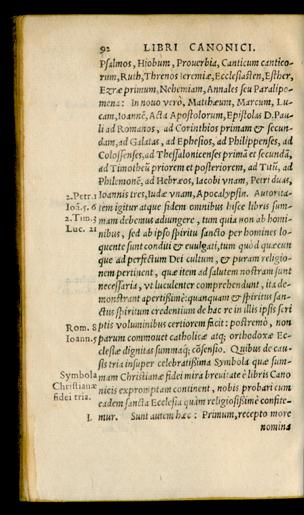 92 LIBRI CANONICI.
Psalmos, Hiobum, Prouerbia, Canticum cantico-
rum, Ruth, Threnos Ieremiæ, Ecclesiasten, Esther,
Ezræ primum, Nehemiam, Annales seu Paralipo-
mena: in nouo verò, Matthæum, Marcum, Lu-
cam, Ioannē, Acta Apostolorum, Epistolas D. Pau-
li ad Romanos, ad Corinthios primam & secun-
dam, ad Galatas, ad Ephesios, ad Philippenses, ad
Colossenses, ad Thessalonicenses primā et secundā,
ad Timotheū priorem et posteriorem, ad Titū, ad
Philemonē, ad Hebræos, Iacobi vnam, Petri duas,
2. Petr. 1 Ioannis tres, Iudæ vnam, Apocalypsin. Autorita-
Ioā. 5. 6 tem igitur atque fidem omnibus hisce libris sum-
2. Tim. 3 mam debemus adiungere, tum quia non ab homi-
Luc. 21 nibus, sed ab ipso spiritu sancto per homines lo-
quente sunt conditi & euulgati, tum quòd quæcun
que ad perfectum Dei cultum, & puram religio-
nem pertinent, quæ item ad salutem nostram sunt
necessaria, vt luculenter comprehendunt, ita de-
monstrant apertißimè: quanquam & spiritus san-
ctus spiritum credentium de hac re in illis ipsis scri
Rom. 8 ptis voluminibus certiorem facit: postremò, non
Ioann. 5 parum commouet catholicæ atq; orthodoxæ Ec-
clesiæ dignitas summaq; cōsensio. Quibus de cau-
sis tria insuper celebratißima Symbola quæ sum-
Symbola mam Christianæ fidei mira breuitate è libris Cano
Christianæ nicis expromptam continent, nobis probari cum
fidei tria. eadem sancta Ecclesia quàm religiosißimè confite-
I. mur. Sunt autem hæc: Primum, recepto more
nomina